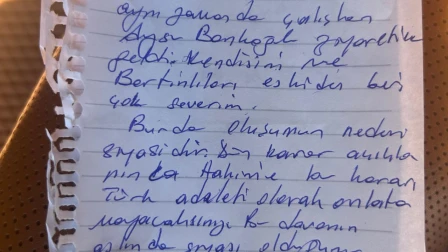 aynı zamanda çalışkan
Aysu Bankoğlu ziyaretime
geldi. Kendisini ve
Bartınlıları eskiden beri
çok severim.
Burda oluşumun nedeni
siyasidir. Bin karar açıkla
Hakim'e bu kararı
Türk adaleti olarak anlata
mayacaksınız Bu davanın
aslında siyasi olduğunu